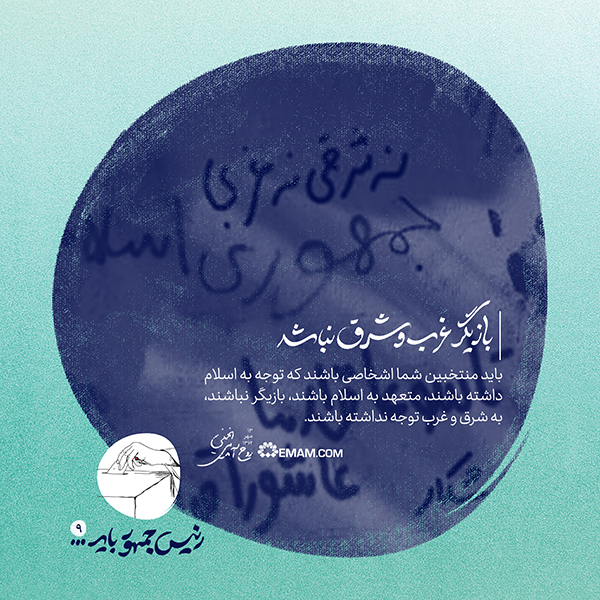 نه شرقی نه غربی
جمهوری اسلا
بازیگر غرب و شرق نباشد
باید منتخبین شما اشخاصی باشند که توجه به اسلام
داشته باشند، متعهد به اسلام باشند، بازیگر نباشند،
به شرق و غرب توجه نداشته باشند.
EMAM.COM
عاشورا
رئیس جمهور باید ...
۹